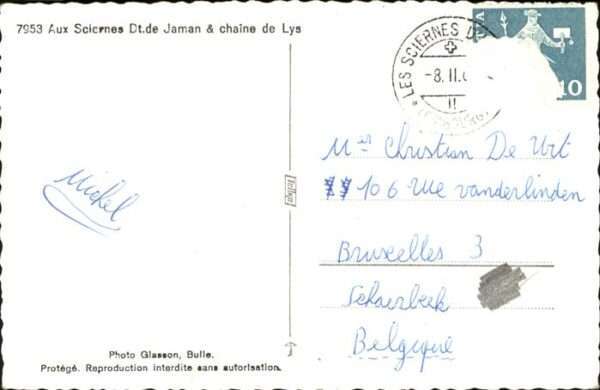 7953 Aux Sciernes Dt.de Jaman & chaîne de Lys
LES SCIERNES D
-8. II.
II
10
Mer Christian De Wit
106 rue vanderlinden
Bruxelles 3
Schaerbeek
Belgique
Michel
Photo Glasson, Bulle.
Protégé. Reproduction interdite sans autorisation.